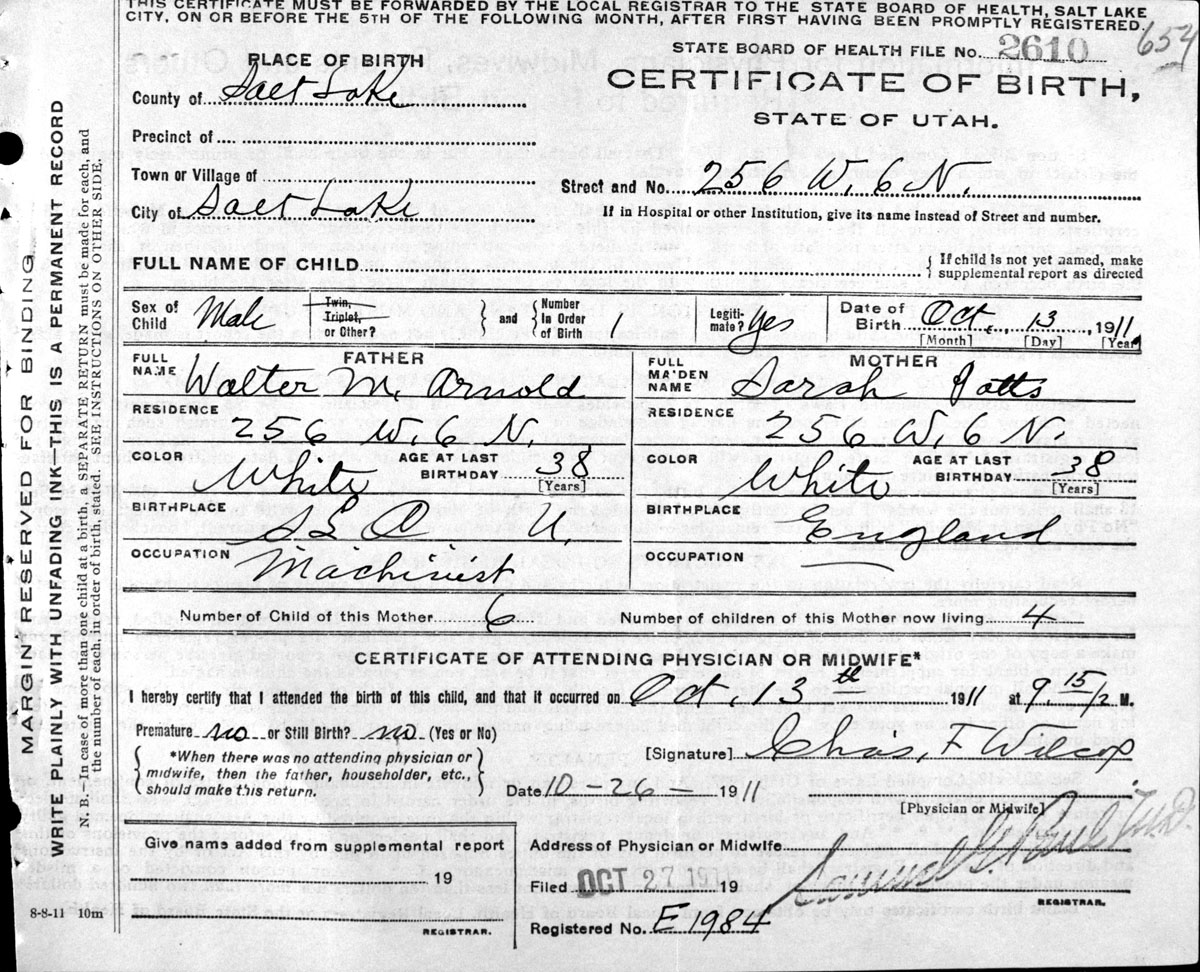 THIS CERTIFICATE MUST BE FORWARDED BY THE LOCAL REGISTRAR TO THE STATE BOARD OF HEALTH, SALT LAKE
CITY, ON OR BEFORE THE 5TH OF THE FOLLOWING MONTH, AFTER FIRST HAVING BEEN PROMPTLY REGISTERED.
654
STATE BOARD OF HEALTH FILE No. 2610
CERTIFICATE OF BIRTH,
STATE OF UTAH.
PLACE OF BIRTH
County of Salt Lake
Precinct of
Town or Village of
Street and No. 256 W. 6 N.
City of Salt Lake
If in Hospital or other Institution, give its name instead of Street and number.
FULL NAME OF CHILD
If child is not yet named, make
supplemental report as directed
Sex of Child Male
Twin, Triplet, or Other?
and
Number in Order of Birth 1
Legiti-mate? Yes
Date of Birth Oct. 13, 1911
[Month] [Day] [Year]
FATHER
FULL NAME Walter M. Arnold
RESIDENCE
256 W. 6 N.
COLOR White
AGE AT LAST BIRTHDAY 38
[Years]
BIRTHPLACE
S L C U.
OCCUPATION
Machinist
MOTHER
FULL MAIDEN NAME Sarah Potts
RESIDENCE
256 W. 6 N.
COLOR White
AGE AT LAST BIRTHDAY 38
[Years]
BIRTHPLACE
England
OCCUPATION
Number of Child of this Mother 6
Number of children of this Mother now living 4
CERTIFICATE OF ATTENDING PHYSICIAN OR MIDWIFE*
I hereby certify that I attended the birth of this child, and that it occurred on Oct. 13th 1911 at 9.15 M.
Premature no or Still Birth? no (Yes or No)
*When there was no attending physician or
midwife, then the father, householder, etc.,
should make this return.
[Signature] Chas. F. Wilcox
Date 10-26-1911
[Physician or Midwife]
Give name added from supplemental report
19
REGISTRAR.
Address of Physician or Midwife
Filed OCT 27 1911 19
REGISTRAR.
Registered No. E1984
8-8-11 10m
MARGIN RESERVED FOR BINDING
WRITE PLAINLY WITH UNFADING INK—THIS IS A PERMANENT RECORD
N. B.—In case of more than one child at a birth, a SEPARATE RETURN must be made for each, and
the number of each, in order of birth, stated. SEE INSTRUCTIONS ON OTHER SIDE.